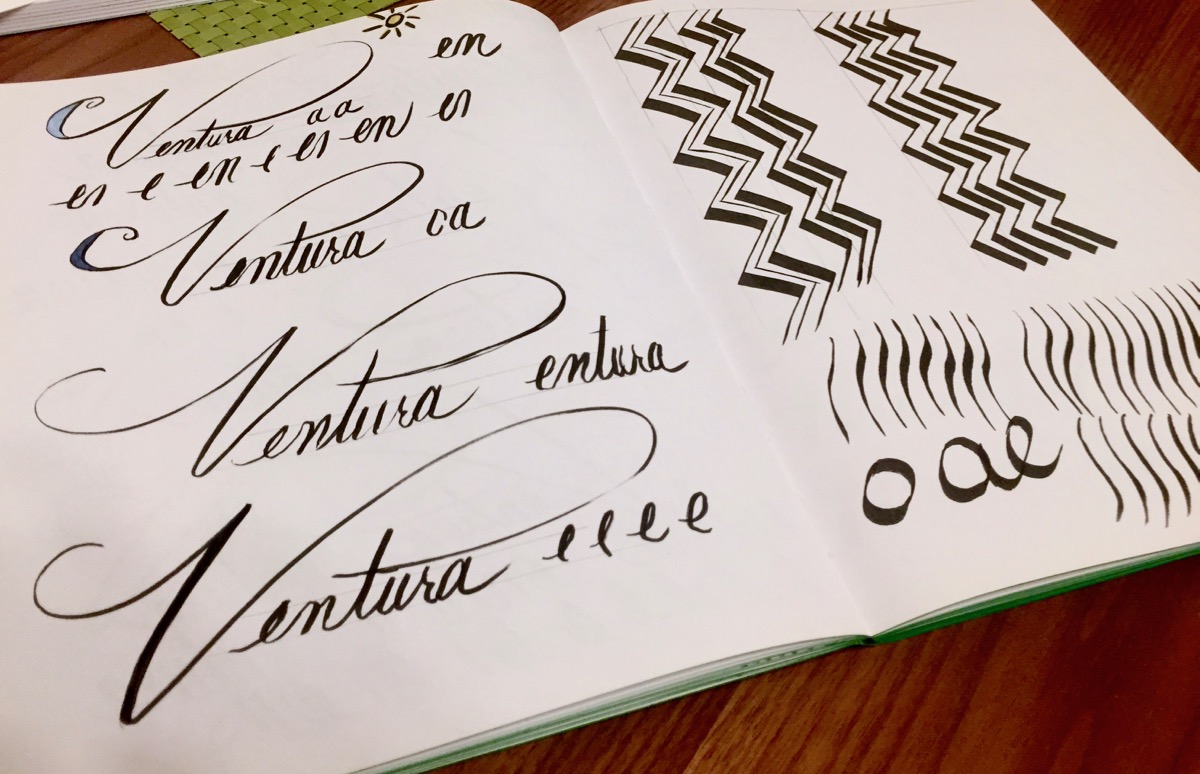 en
Ventura a a
e en e en
Ventura ca
Ventura entura
Ventura e e e e
o a e